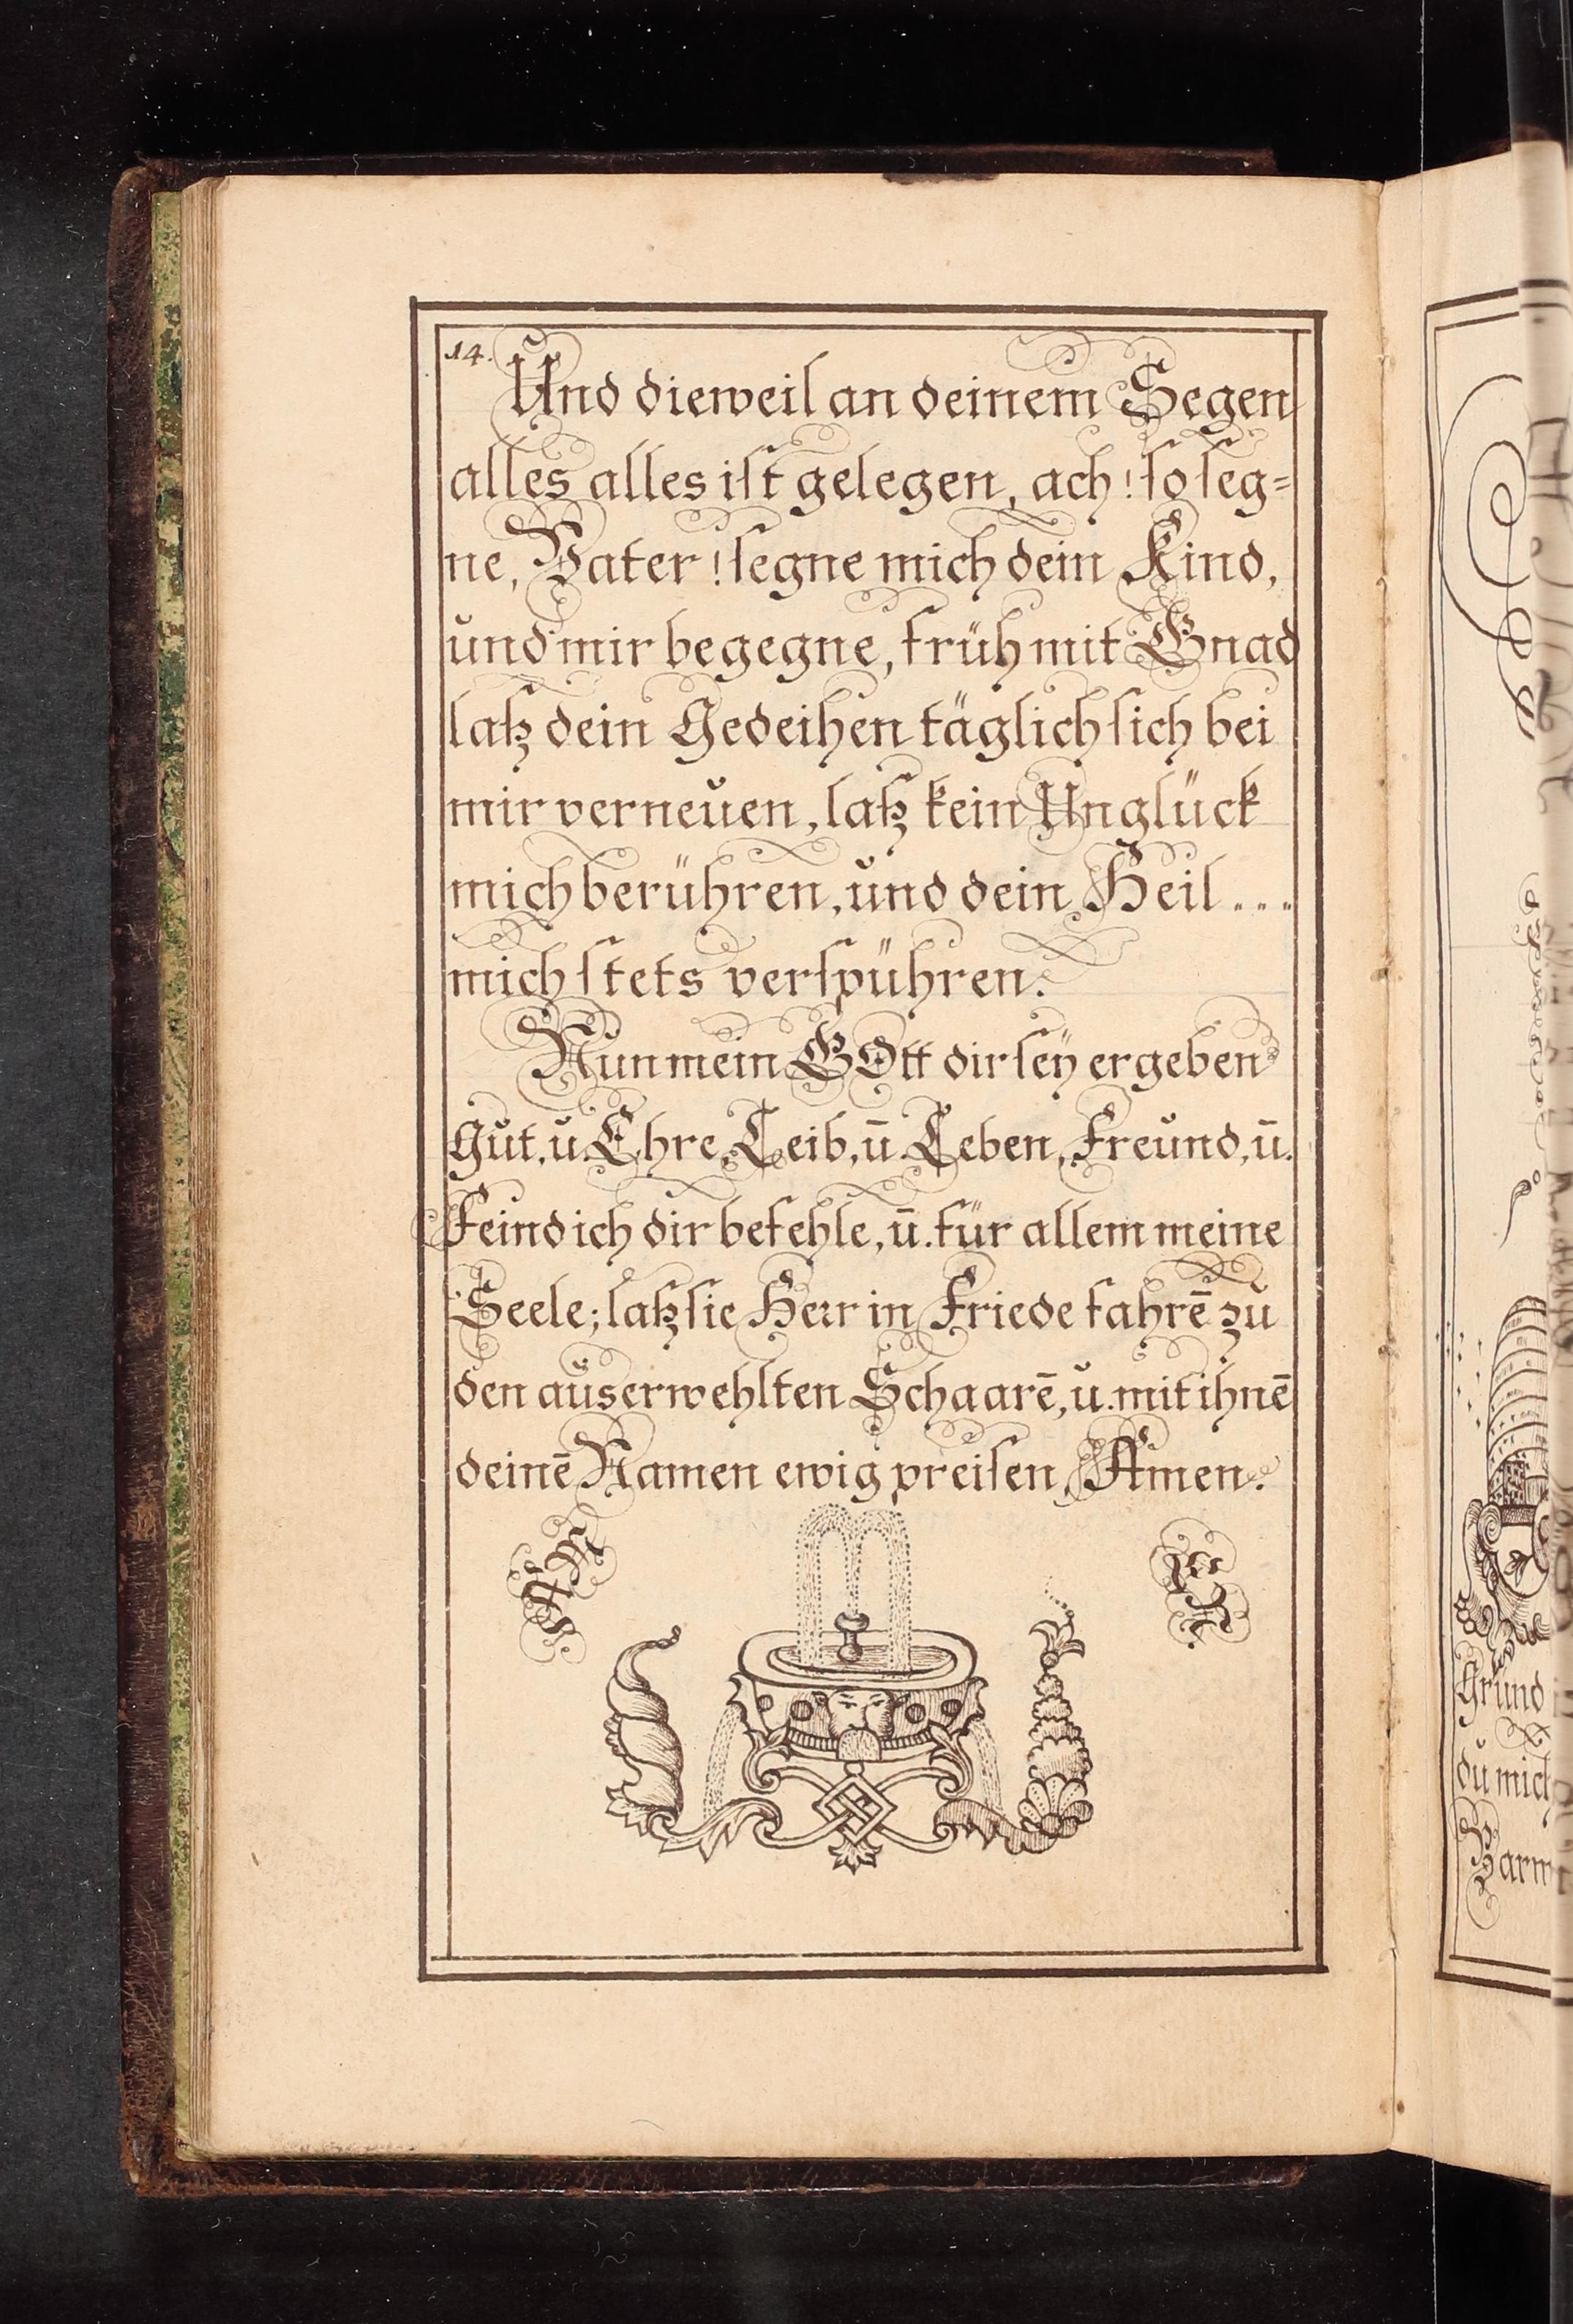 14.
Und dieweil an deinem Segen
alles alles iſt gelegen, ach! ſo ſeg=
ne, Vater! ſegne mich dein Kind,
und mir begegne, früh mit Gnad
laß dein Gedeihen täglich ſich bei
mir verneuen, laß kein Unglück
mich berühren, und dein Heil...
mich ſtets verſpühren.
Nun mein GOtt dir ſeÿ ergeben
Gut, u. Ehre, Leib, ū. Leben, Freund, ū.
Feind ich dir befehle, ū. für allem meine
Seele; laß ſie Herr in Friede fahrē zu
den auserwehlten Schaarē, u. mit ihnē
deinē Namen ewig preiſen, Amen.
Grund
du mich
Barm